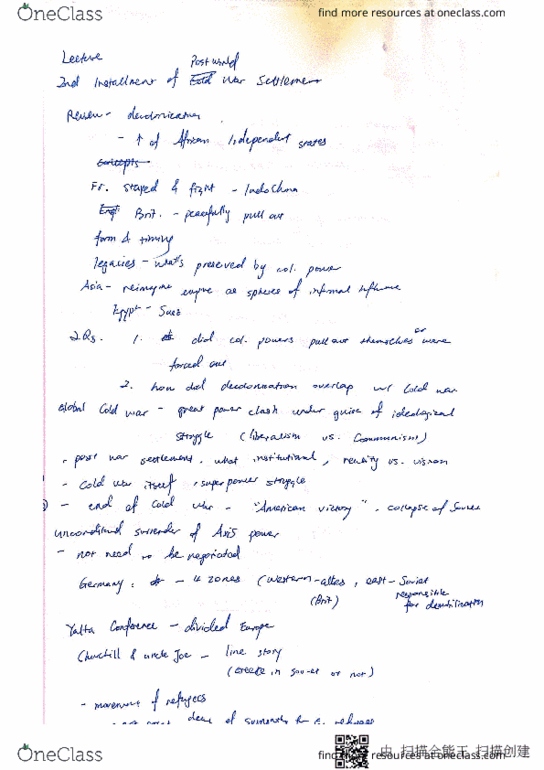 OneClass
find more resources at oneclass.com
Lecture
Post world
2nd Installment of Cold War Settlement
Review - decolonization
- ↑ of African Independent states
concepts
Fr. stayed & fight - Indochina
Brit. - peacefully pull out
form & timing
legacies - what's preserved by col. power
Asia - reimagine empire as spheres of informal influence
Egypt - Suez
2 Qs. 1. did col. powers pull out themselves or were
forced out
2. how did decolonization overlap w/ Cold war
Global Cold war - great power clash under guise of ideological
struggle (liberalism vs. Communism)
- post war settlement. what institutional, reality vs. vision
- Cold war itself, superpower struggle
- end of Cold War - "American victory", collapse of Soviet
unconditional surrender of Axis power
- not need to be negotiated
Germany: - 4 zones (Western-allies, east - Soviet
(Brit)
responsible
for denazification
Yalta Conference - divided Europe
Churchill & uncle Joe - line story
(Greece in Soviet or not)
- movement of refugees
OneClass
find more resources at oneclass.com
扫描全能王 扫描创建